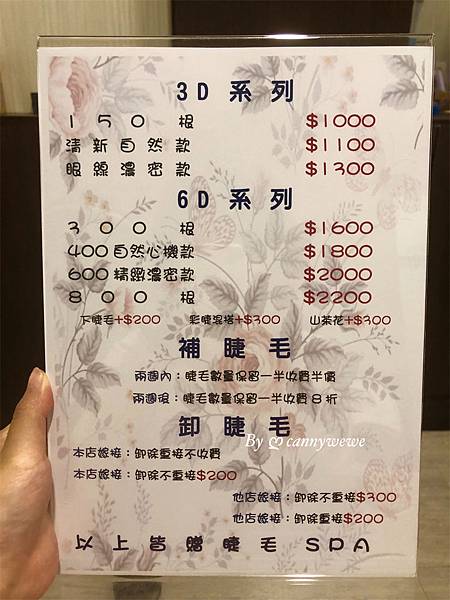 3D 系列
150 根 $1000
清新自然款 $1100
眼線濃密款 $1300
6D 系列
300 根 $1600
400自然心機款 $1800
600精緻濃密款 $2000
800 根 $2200
下睫毛+$200 彩睫混搭+$300 山茶花+$300
補睫毛
兩週內：睫毛數量保留一半收費半價
兩週後：睫毛數量保留一半收費8折
卸睫毛
By ♡ cannywewe
本店嫁接：卸除重接不收費
本店嫁接：卸除不重接$200
他店嫁接：卸除不重接$300
他店嫁接：卸除重接$200
以上皆贈睫毛 SPA